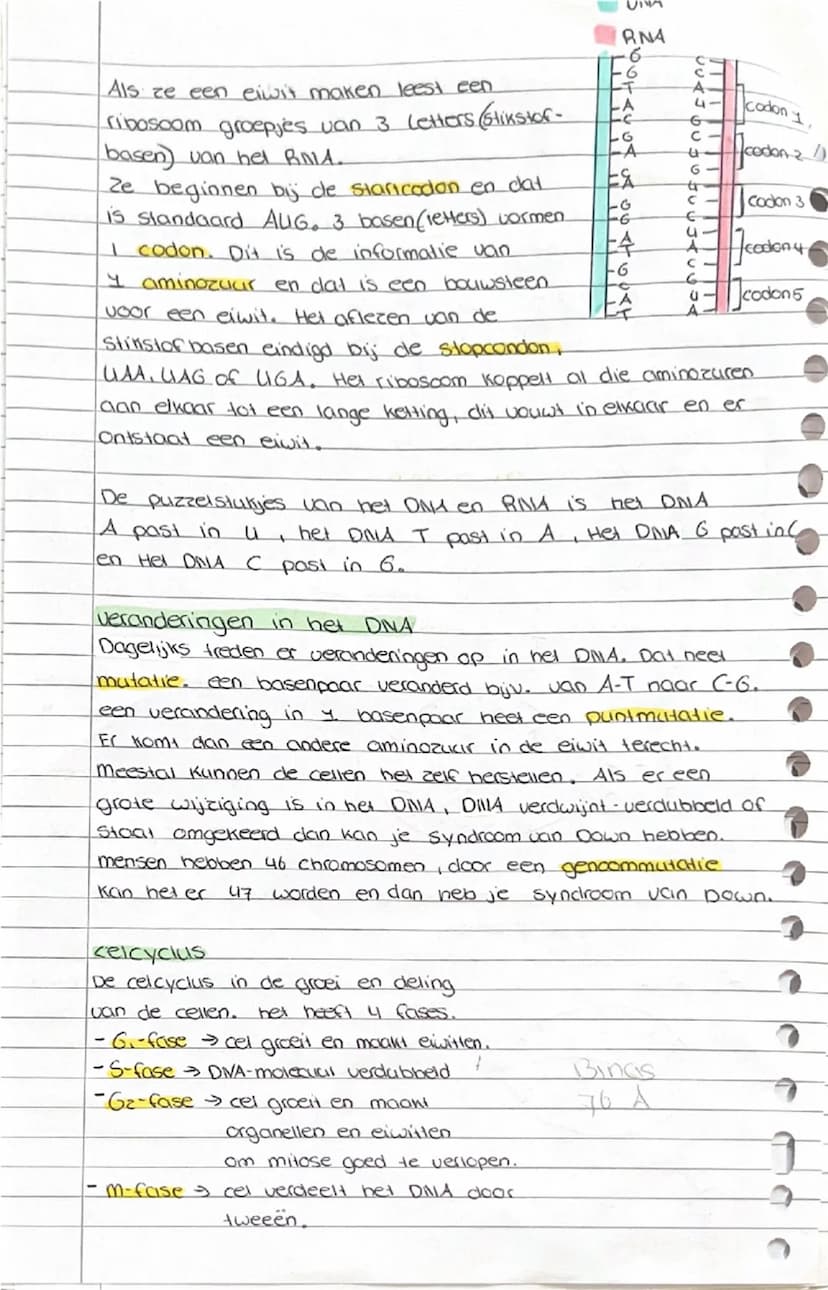 DNA
RNA
Als ze een eiwit maken leest een
ribosoom groepjes van 3 letters (stikstof-
basen) van het RNA.
Ze beginnen bij de startcodon en dat
is standaard AUG. 3 basen (letters) vormen
1 codon. Dit is de informatie van
1 aminozuur en dat is een bouwsteen
voor een eiwit. Het aflezen van de
stikstofbasen eindigd bij de stopcondon,
UAA, UAG of UGA. Het ribosoom koppelt al die aminozuren
aan elkaar tot een lange ketting, dit vouwt in elkaar en er
ontstaat een eiwit.
G
G
T
A
C
G
A
C
A
G
G
A
T
G
C
A
T
C
C
A
U
G
C
U
G
U
C
C
U
A
C
G
U
A
codon 1
codon 2
codon 3
codon 4
codon 5
De puzzelstukjes van het DNA en RNA is het DNA
A past in U, het DNA T past in A, Het DNA G past in C
en Het DNA C past in G.
veranderingen in het DNA
Dagelijks treden er veranderingen op in het DNA. Dat heet
mutatie. een basenpaar veranderd bijv. van A-T naar C-G.
een verandering in 1 basenpaar heet een puntmutatie.
Er komt dan een andere aminozuur in de eiwit terecht.
Meestal kunnen de cellen het zelf herstellen. Als er een
grote wijziging is in het DNA, DNA verdwijnt-verdubbeld of
staat omgekeerd dan kan je syndroom van Down hebben.
mensen hebben 46 chromosomen, door een genoommutatie
kan het er 47 worden en dan heb je syndroom van Down.
celcyclus
De celcyclus in de groei en deling
van de cellen. het heeft 4 fases.
- G1-fase → cel groeit en maakt eiwitten.
- S-fase → DNA-moleculul verdubbeld
- G2-fase → cel groeit en maakt
organellen en eiwitten
om mitose goed te verlopen.
- M-fase → cel verdeelt het DNA door
tweeën.
Binas
76 A